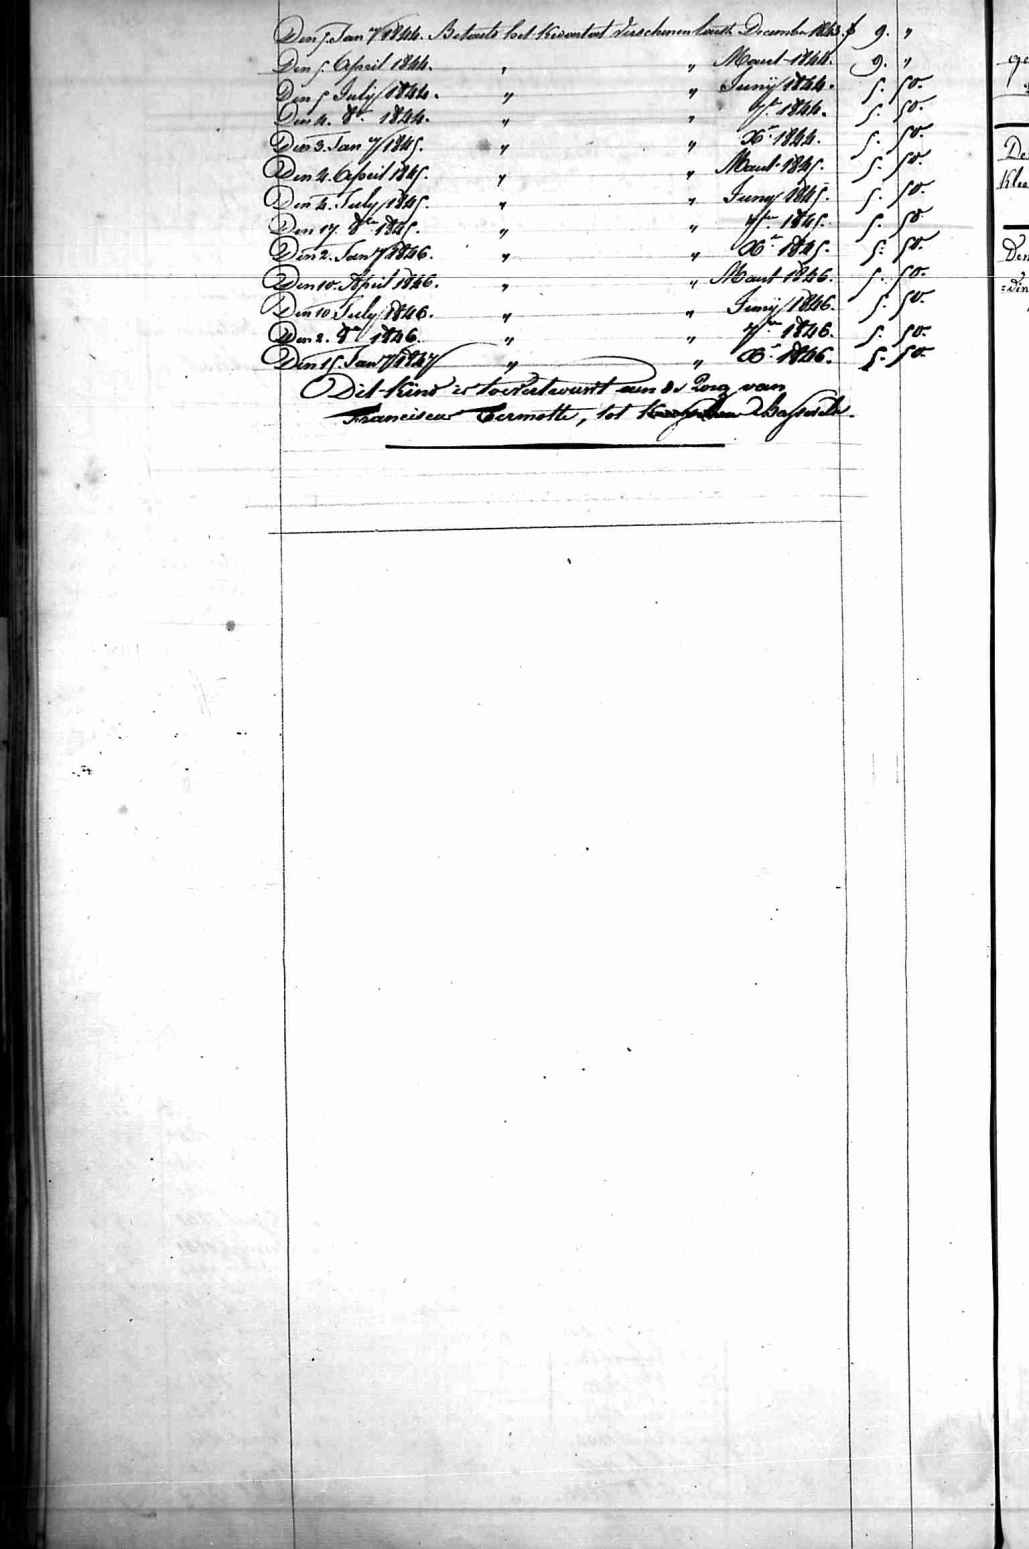 Den 5. Jan.y 1844. Betaald het kwartaal verschenen laatst December 1843. f 9. "
Den 5. April 1844. " " Maart 1844. 9. "
Den 5 July 1844. " " Junij 1844. 5. 50.
Den 4. 8br 1844. " " 7br 1844. 5. 50.
Den 3. Jan.y 1845. " " Xr 1844. 5. 50.
Den 4. April 1845. " " Maart 1845. 5. 50.
Den 4. July 1845. " " Juny 1845. 5. 50.
Den 17. 8ber 1845. " " 7ber 1845. 5. 50
Den 2. Jan.y 1846. " " Xr 1845. 5. 50.
Den 10. April 1846. " " Maart 1846. 5. 50.
Den 10 July 1846. " " Junij 1846. 5. 50.
Den 2. 8br 1846. " " 7ber 1846. 5. 50.
Den 15. Jany 1847 " " Xr 1846. 5. 50.
Dit kind is toevertrouwt aen de zorg van
Franciscus Termotte, tot